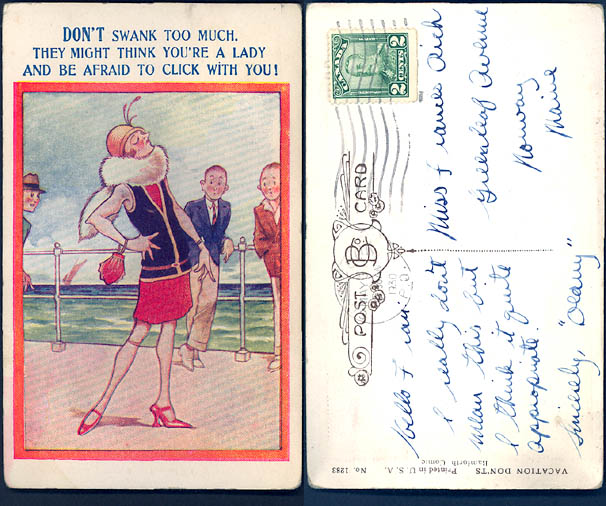 DON'T SWANK TOO MUCH.
THEY MIGHT THINK YOU'RE A LADY
AND BE AFRAID TO CLICK WITH YOU!
CANADA
2 CENTS 2
POST CARD
Miss Frances Rich
Greenleaf Avenue
Norway
Maine
Hello Fran:
I really don't
mean this but
I think it quite
appropriate.
Sincerely, "Deany"
VACATION DON'TS
Printed in U.S.A. No. 1283
Bamforth Comic